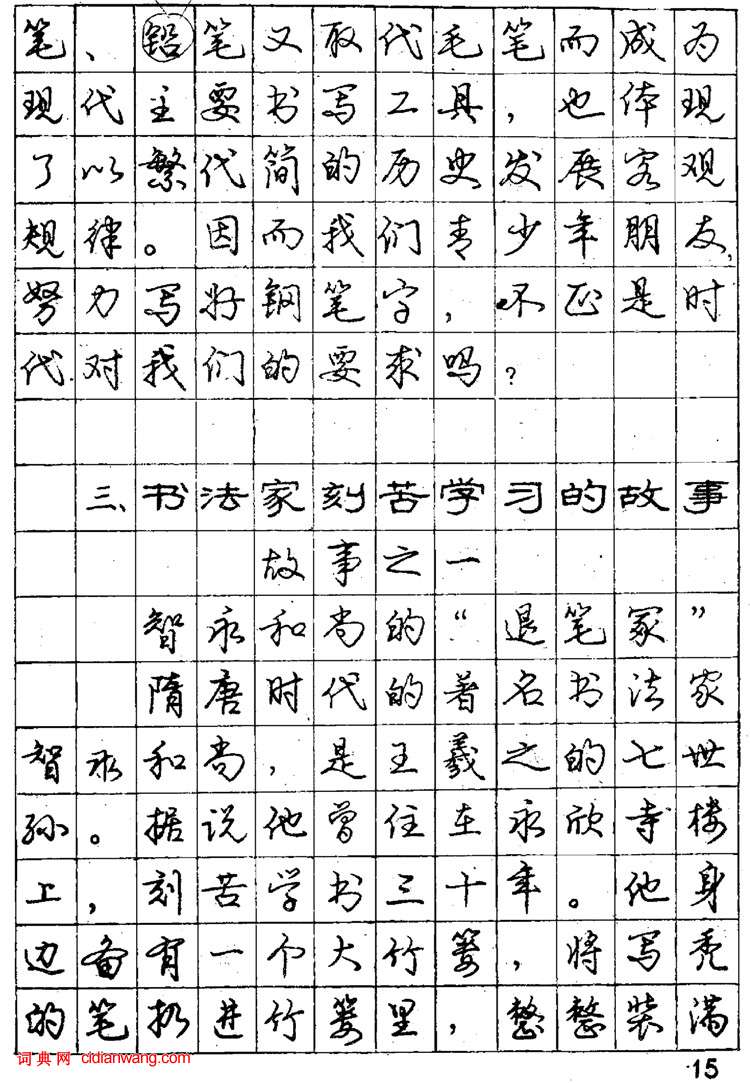 笔、铅笔又取代毛笔而成为
现代主要书写工具，也体现
了以繁代简的历史发展客观
规律。因而我们青少年朋友，
努力写好钢笔字，不正是时
代对我们的要求吗？
三、书法家刻苦学习的故事
故事之一
智永和尚的“退笔冢”
隋唐时代的著名书法家
智永和尚，是王羲之的七世
孙。据说他曾住在永欣寺楼
上，刻苦学书三十年。他身
边备有一个大竹篓，将写秃
的笔扔进竹篓里，整整装满
词典网 cidianwang.com
15